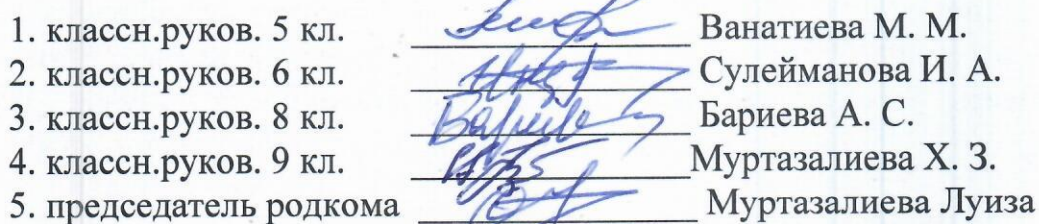 1. классн.руков. 5 кл. Ванатиева М. М.
2. классн.руков. 6 кл. Сулейманова И. А.
3. классн.руков. 8 кл. Бариева А. С.
4. классн.руков. 9 кл. Муртазалиева Х. З.
5. председатель родкома Муртазалиева Луиза